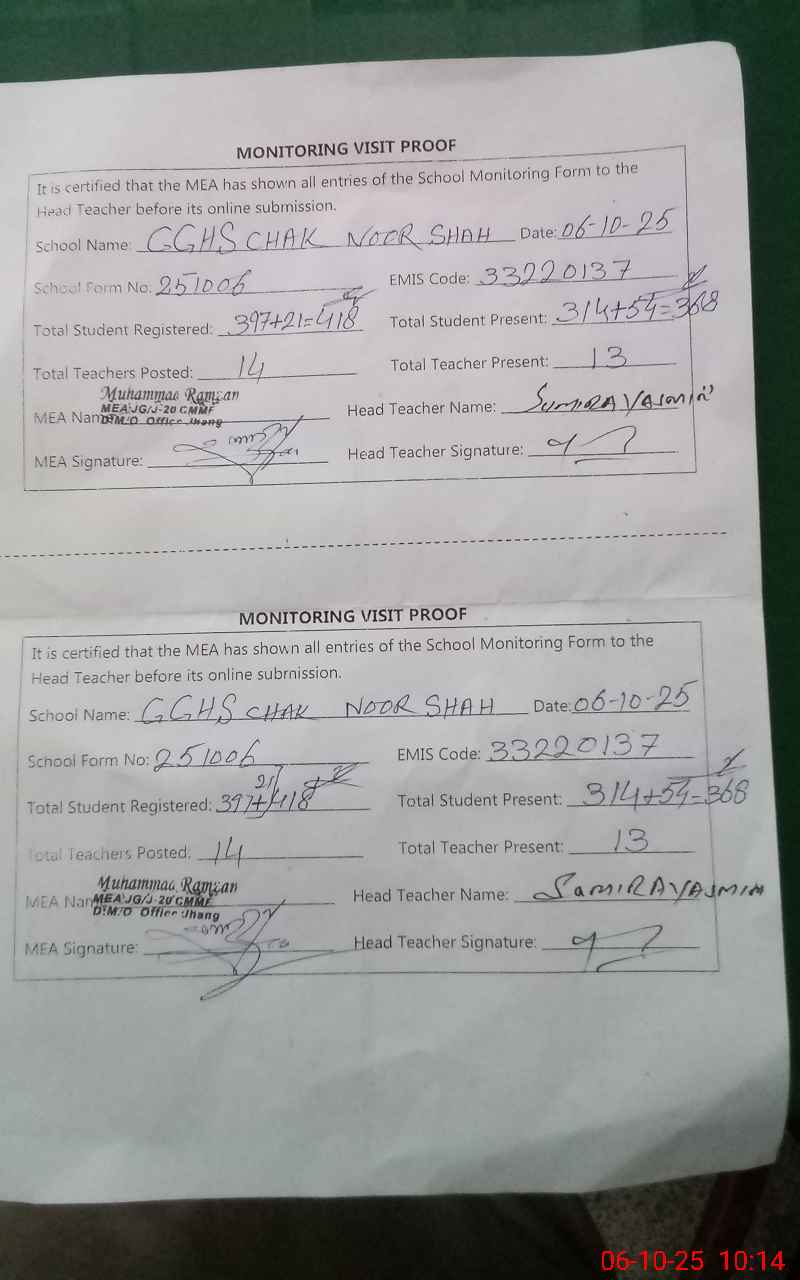 MONITORING VISIT PROOF
It is certified that the MEA has shown all entries of the School Monitoring Form to the
Head Teacher before its online submission.
School Name: GGHS CHAK NOOR SHAH Date: 06-10-25
School Form No: 251006 EMIS Code: 33220137
Total Student Registered: 397+21=418 Total Student Present: 314+54=368
Total Teachers Posted: 14 Total Teacher Present: 13
Muhammad Ramzan
MEA JG/J-20 CMMF
D.M.O Office Jhang
MEA Name Head Teacher Name: SumiRA YASMIN
MEA Signature: Head Teacher Signature:
MONITORING VISIT PROOF
It is certified that the MEA has shown all entries of the School Monitoring Form to the
Head Teacher before its online submission.
School Name: GGHS CHAK NOOR SHAH Date: 06-10-25
School Form No: 251006 EMIS Code: 33220137
21
Total Student Registered: 397+/418 Total Student Present: 314+54=368
Total Teachers Posted: 14 Total Teacher Present: 13
Muhammad Ramzan
MEA JG/J-20 CMMF
D.M.O Office Jhang
MEA Name Head Teacher Name: SamiRA YASMIN
MEA Signature: Head Teacher Signature:
06-10-25 10:14